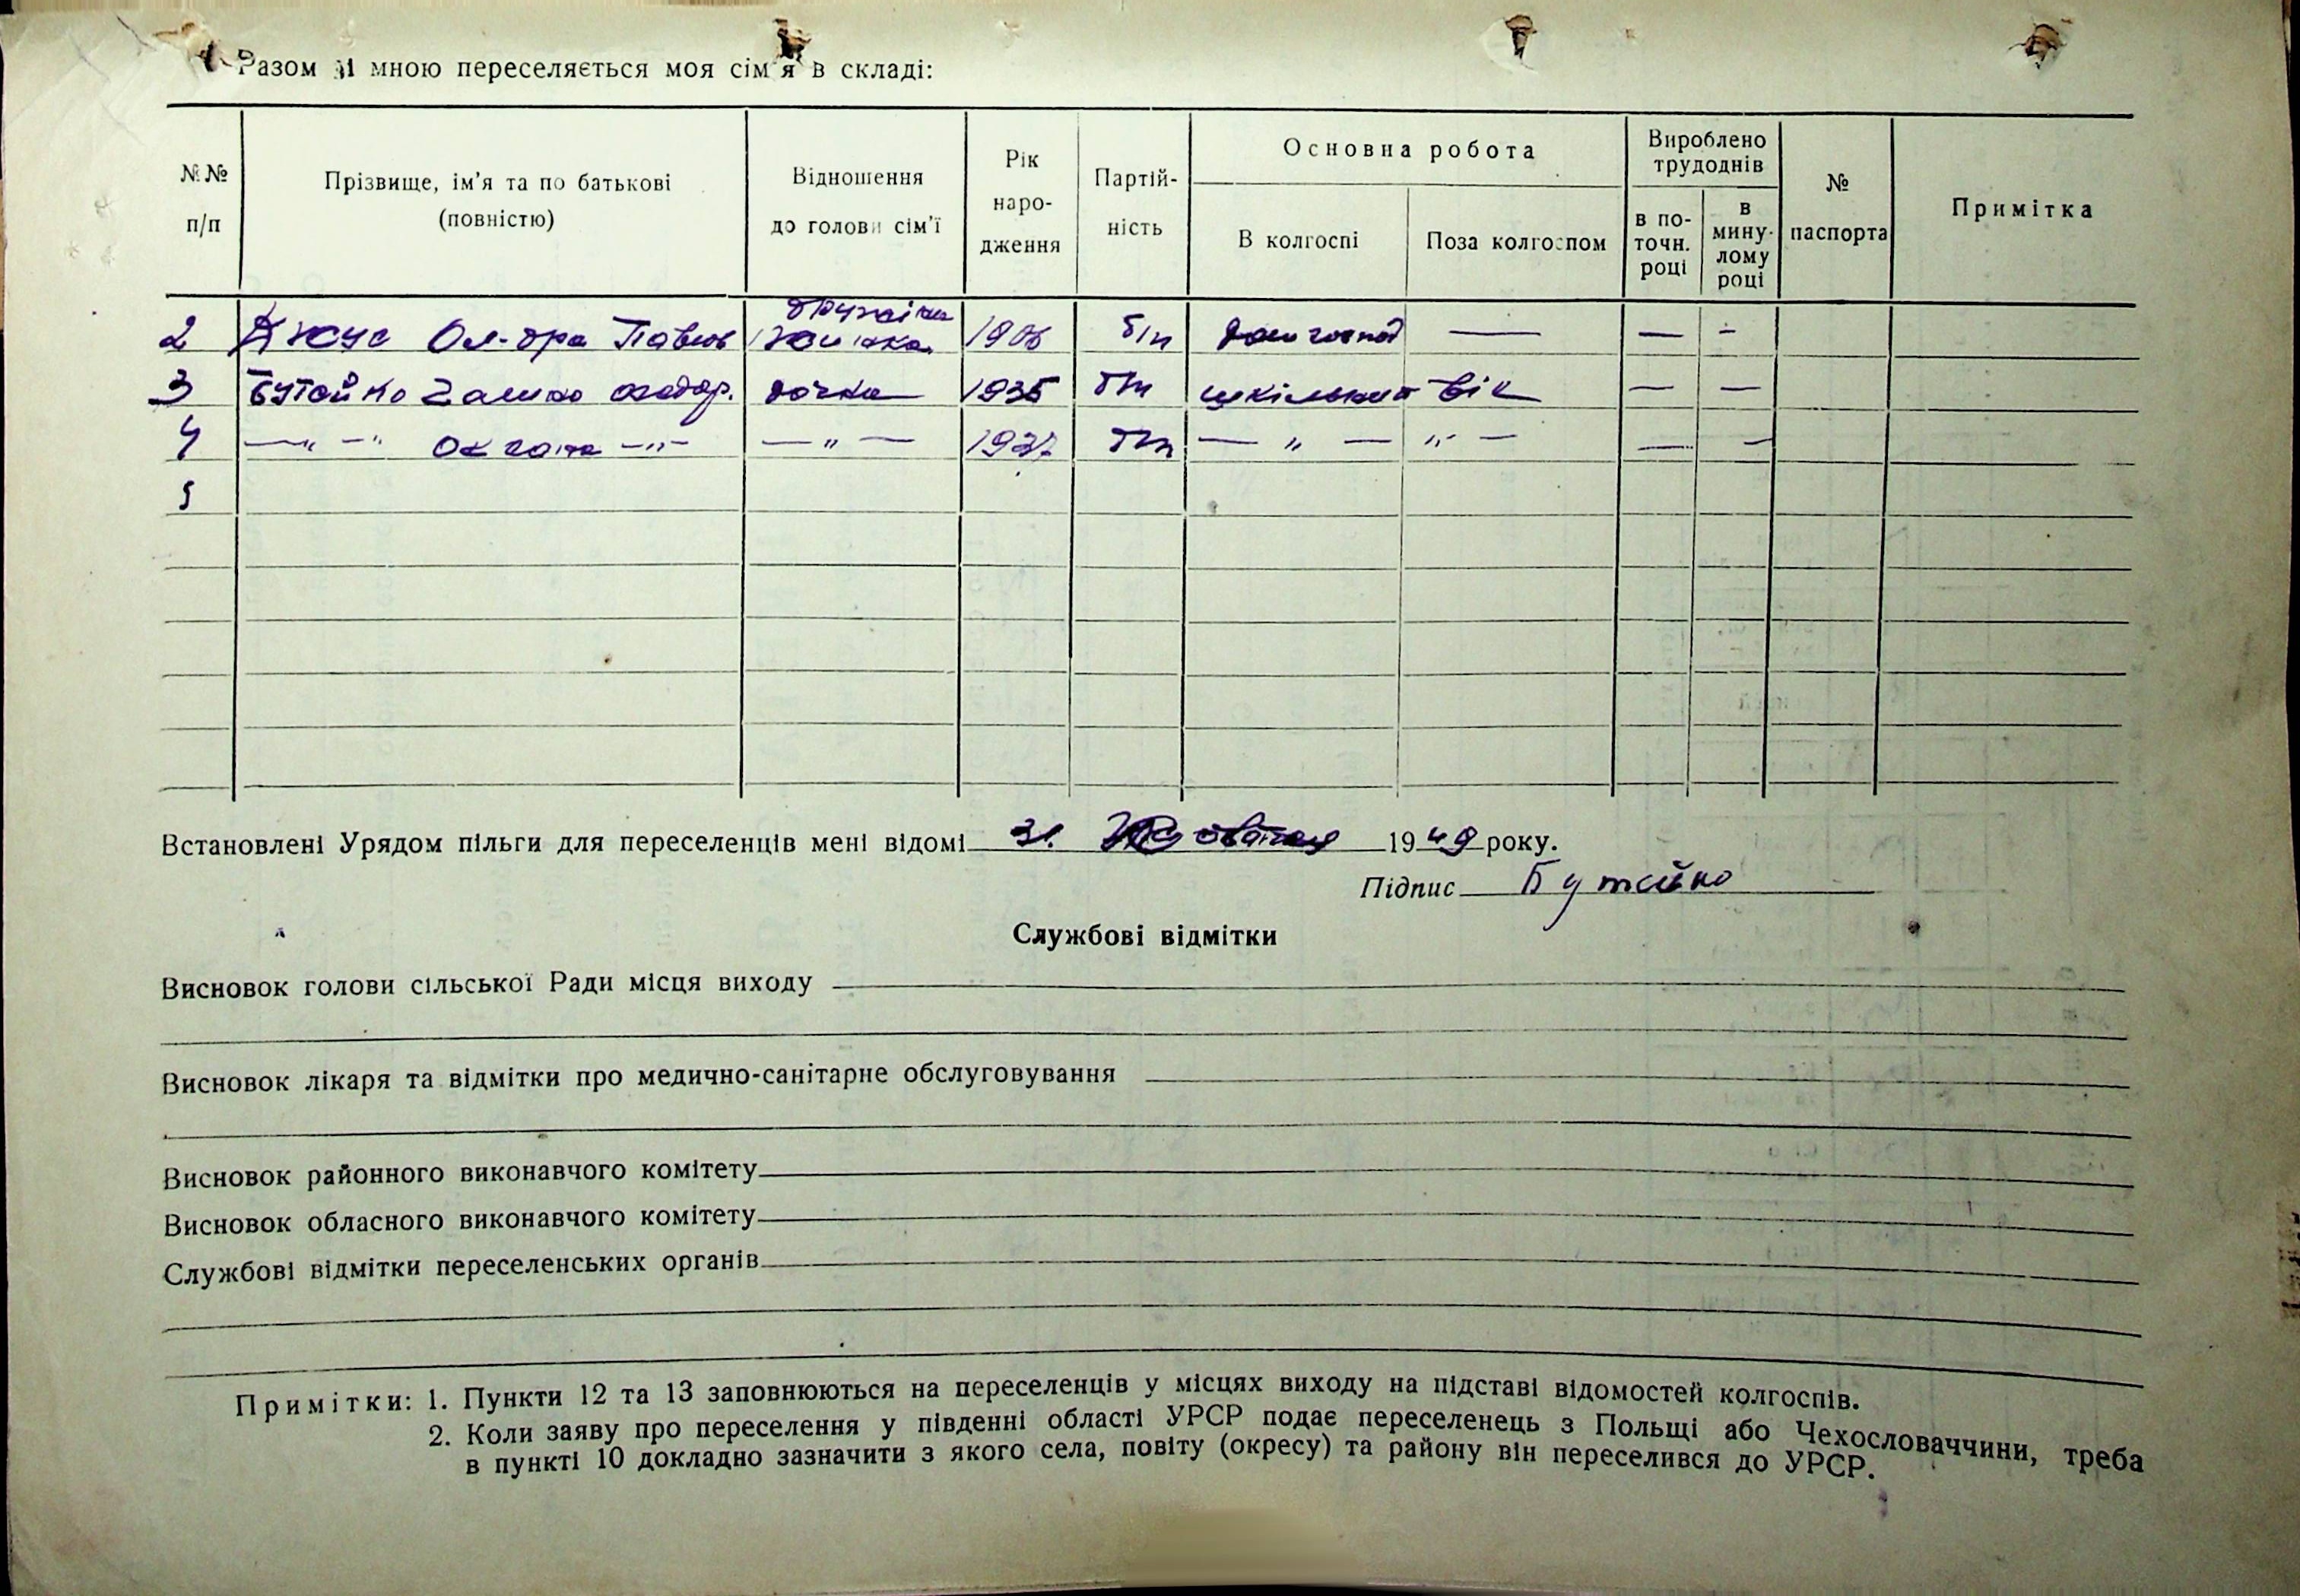 Разом зі мною переселяється моя сім'я в складі:
№№ п/п
Прізвище, ім'я та по батькові (повністю)
Відношення до голови сім'ї
Рік народження
Партійність
Основна робота
В колгоспі
Поза колгоспом
Вироблено трудоднів
в поточн. році
в минулому році
№ паспорта
Примітка
2 Ол-дра Павлов 1906 б/п домогоспод — — -
3 Бутейко дочка 1935 б/п шкільний вік — —
4 — " — " — " — — " — 193 б/п — " — " — — —
5
Встановлені Урядом пільги для переселенців мені відомі 31. 1949 року.
Підпис Бутейко
Службові відмітки
Висновок голови сільської Ради місця виходу
Висновок лікаря та відмітки про медично-санітарне обслуговування
Висновок районного виконавчого комітету
Висновок обласного виконавчого комітету
Службові відмітки переселенських органів
Примітки: 1. Пункти 12 та 13 заповнюються на переселенців у місцях виходу на підставі відомостей колгоспів.
2. Коли заяву про переселення у південні області УРСР подає переселенець з Польщі або Чехословаччини, треба
в пункті 10 докладно зазначити з якого села, повіту (окресу) та району він переселився до УРСР.